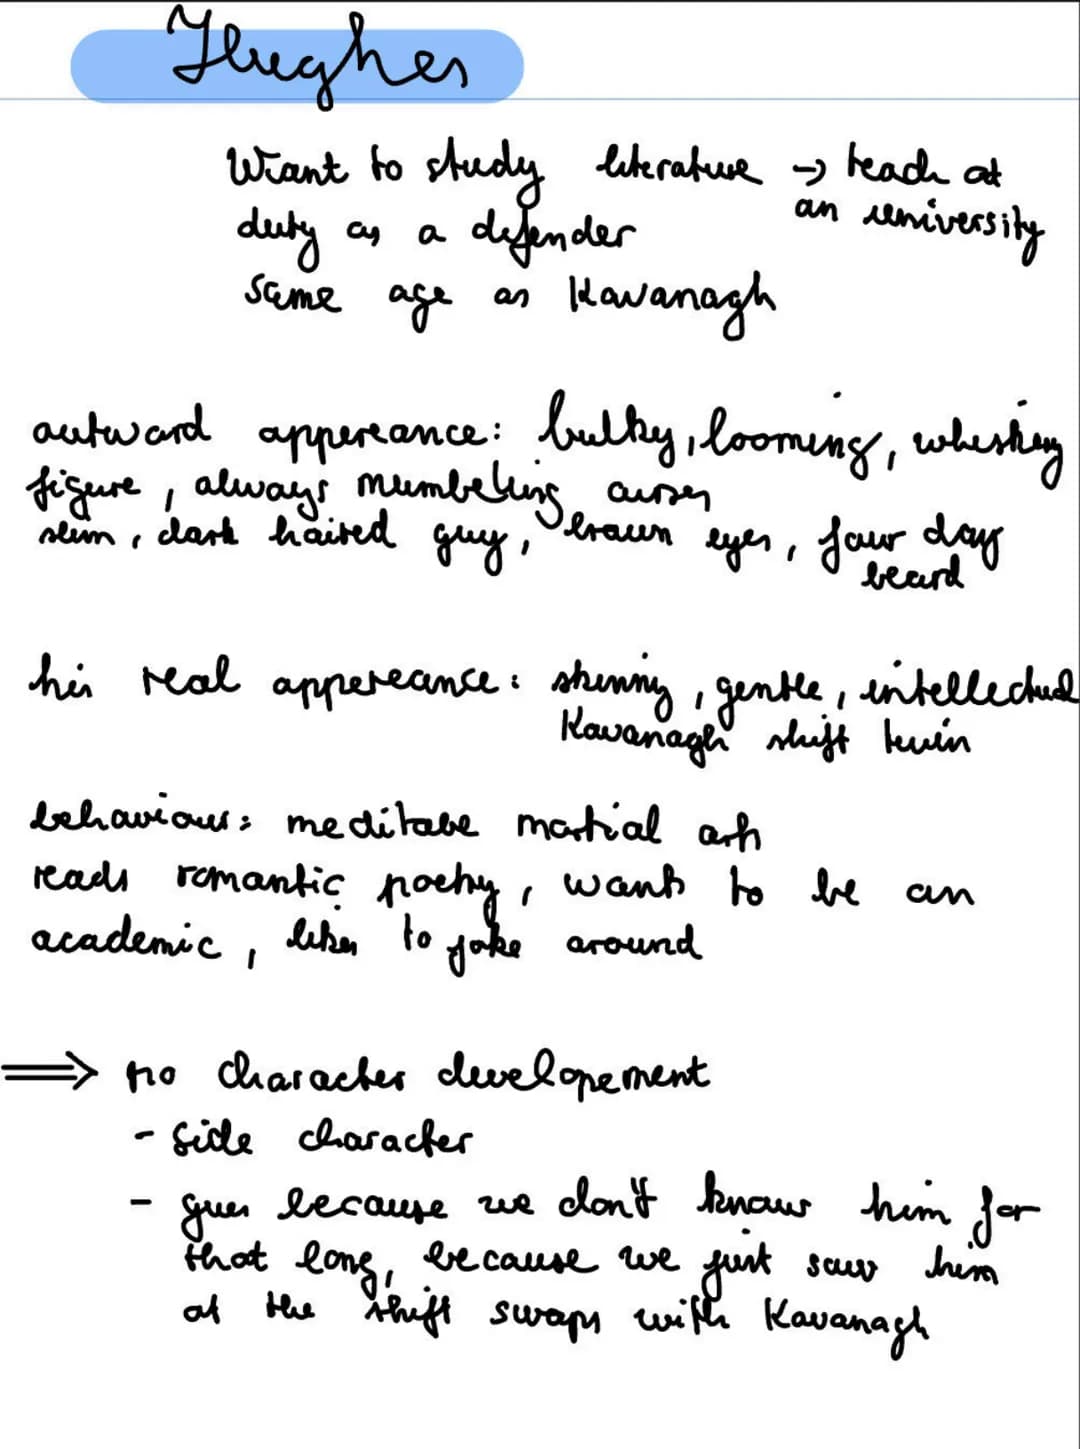 Hughes
Want to study literature → teach at
an university
duty as a defender
same age as Kavanagh
outward appereance: bulky, looming, whiskey
figure, always mumbeling curses
slim, dark haired guy, brown eyes, four day
beard
his real appereance: skinny, gentle, intellectual
Kavanagh shift twin
behaviour: meditabe martial arts
reads romantic poetry, wants to be an
academic, likes to joke around
⇒ no character developement
- side character
- gues because we don't know him for
that long, because we just saw him
at the shift swaps with Kavanagh